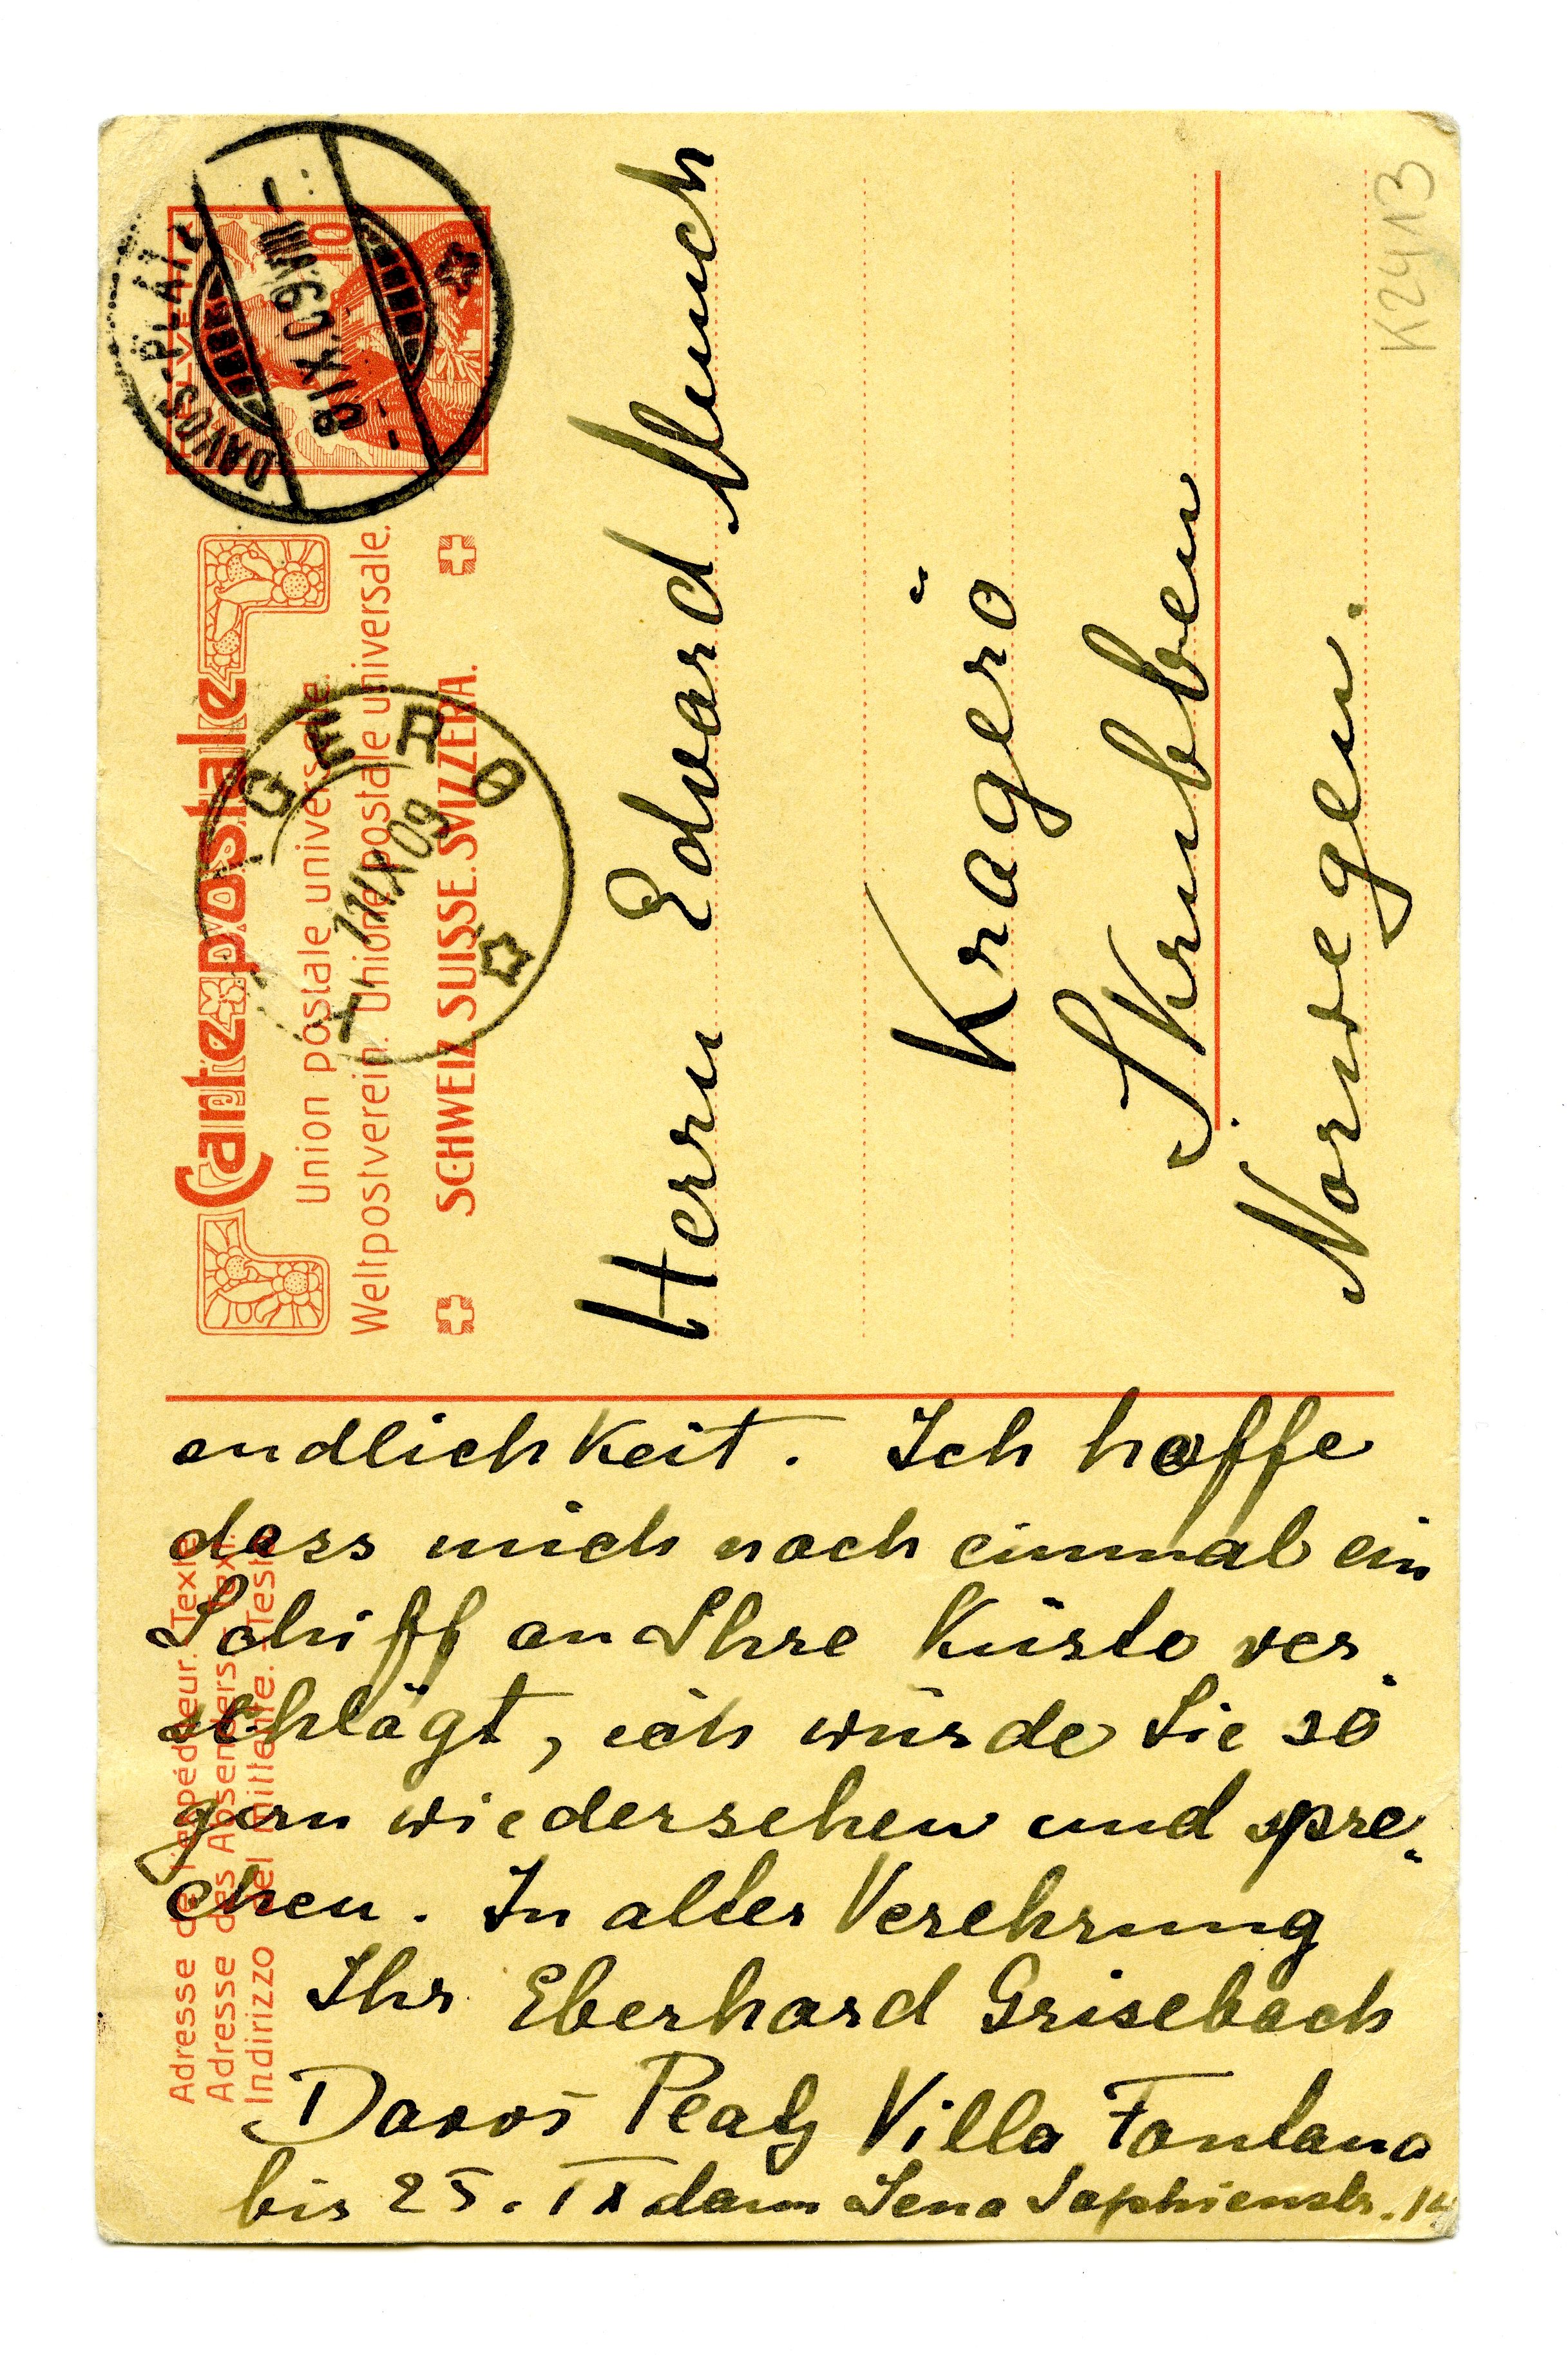 Carte postale
Union postale universelle.
Weltpostverein. Unione postale universale.
SCHWEIZ. SUISSE. SVIZZERA.
DAVOS-PLATZ
8 IX 09 VIII
10
GERØ
11 IX 09
Herrn Edvard Munch
Kragerö
Skrubben
Norwegen.
K2413
Adresse de l'expéditeur. Texte.
Adresse des Absenders. Text.
Indirizzo del mittente. Testo.
endlichkeit. Ich hoffe
dass mich noch einmal ein
Schiff an Ihre Küste ver-
schlägt, ich würde Sie so
gern wiedersehen und spre-
chen. In alter Verehrung
Ihr Eberhard Grisebach
Davos Platz Villa Fontana
bis 25. IX dann Jena Sophienstr. 14